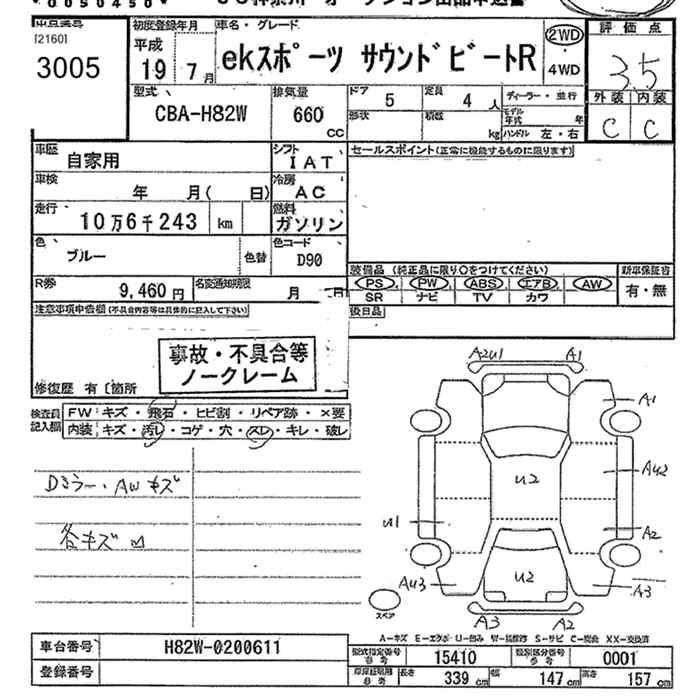 [2160]
3005
初度登録年月
平成
19 年 7月
車名・グレード
ekスポーツ サウンドビートR
2WD
・
4WD
評価点
3.5
外装 内装
C C
型式
CBA-H82W
排気量
660
CC
ドア
5
定員
4 人
形状
積載
kg
ディーラー・並行
モデル年式 年
ハンドル 左・右
車歴
自家用
シフト
IAT
セールスポイント(正常に機能するものに限ります)
車検
年 月( 日)
冷房
AC
走行
10万6千243 km
燃料
ガソリン
色
ブルー
色替
色コード
D90
装備品 (純正品に限り○をつけてください)
新車保証書
PS PW ABS エアB AW
SR ナビ TV カワ
有・無
R券
9,460円
名変通知期限
月 日
注意事項申告欄(不具合内容等は具体的に記入して下さい)
後日品
事故・不具合等
ノークレーム
修復歴 有〔箇所
検査員
記入欄
FW キズ・飛石・ヒビ割・リペア跡・×要
内装 キズ・汚レ・コゲ・穴・スレ・キレ・破レ
Dミラー・AWキズ
各キズ凹
A2U1
A1
A1
U2
AU2
U1
A2
U2
AU3
A3
A3
A2
スペア
A-キズ E-エクボ U-凹み W-補修跡 S-サビ C-腐食 XX-交換済
車台番号
H82W-0200611
型式指定番号
参考
15410
類別区分番号
参考
0001
登録番号
車庫証明用
参考
長さ
339 cm
幅
147 cm
高さ
157 cm